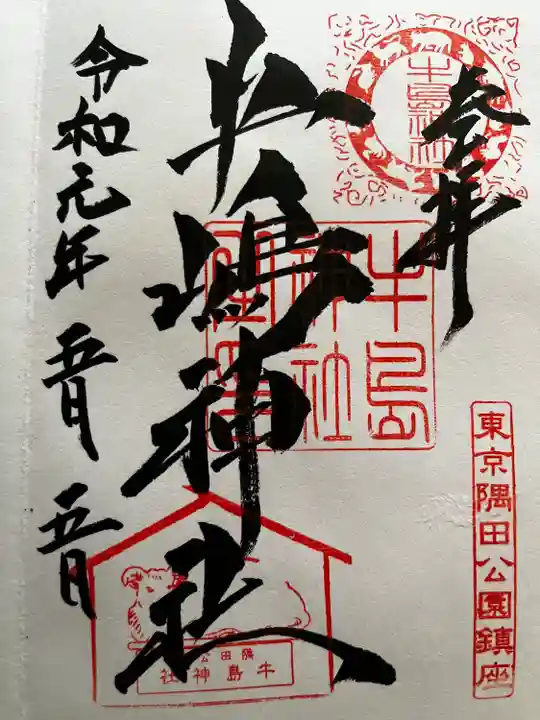 奉拝
牛嶋神社
令和元年 五月 五日
牛島神社
牛島
神社
東京隅田公園鎮座
隅田公
牛島神社